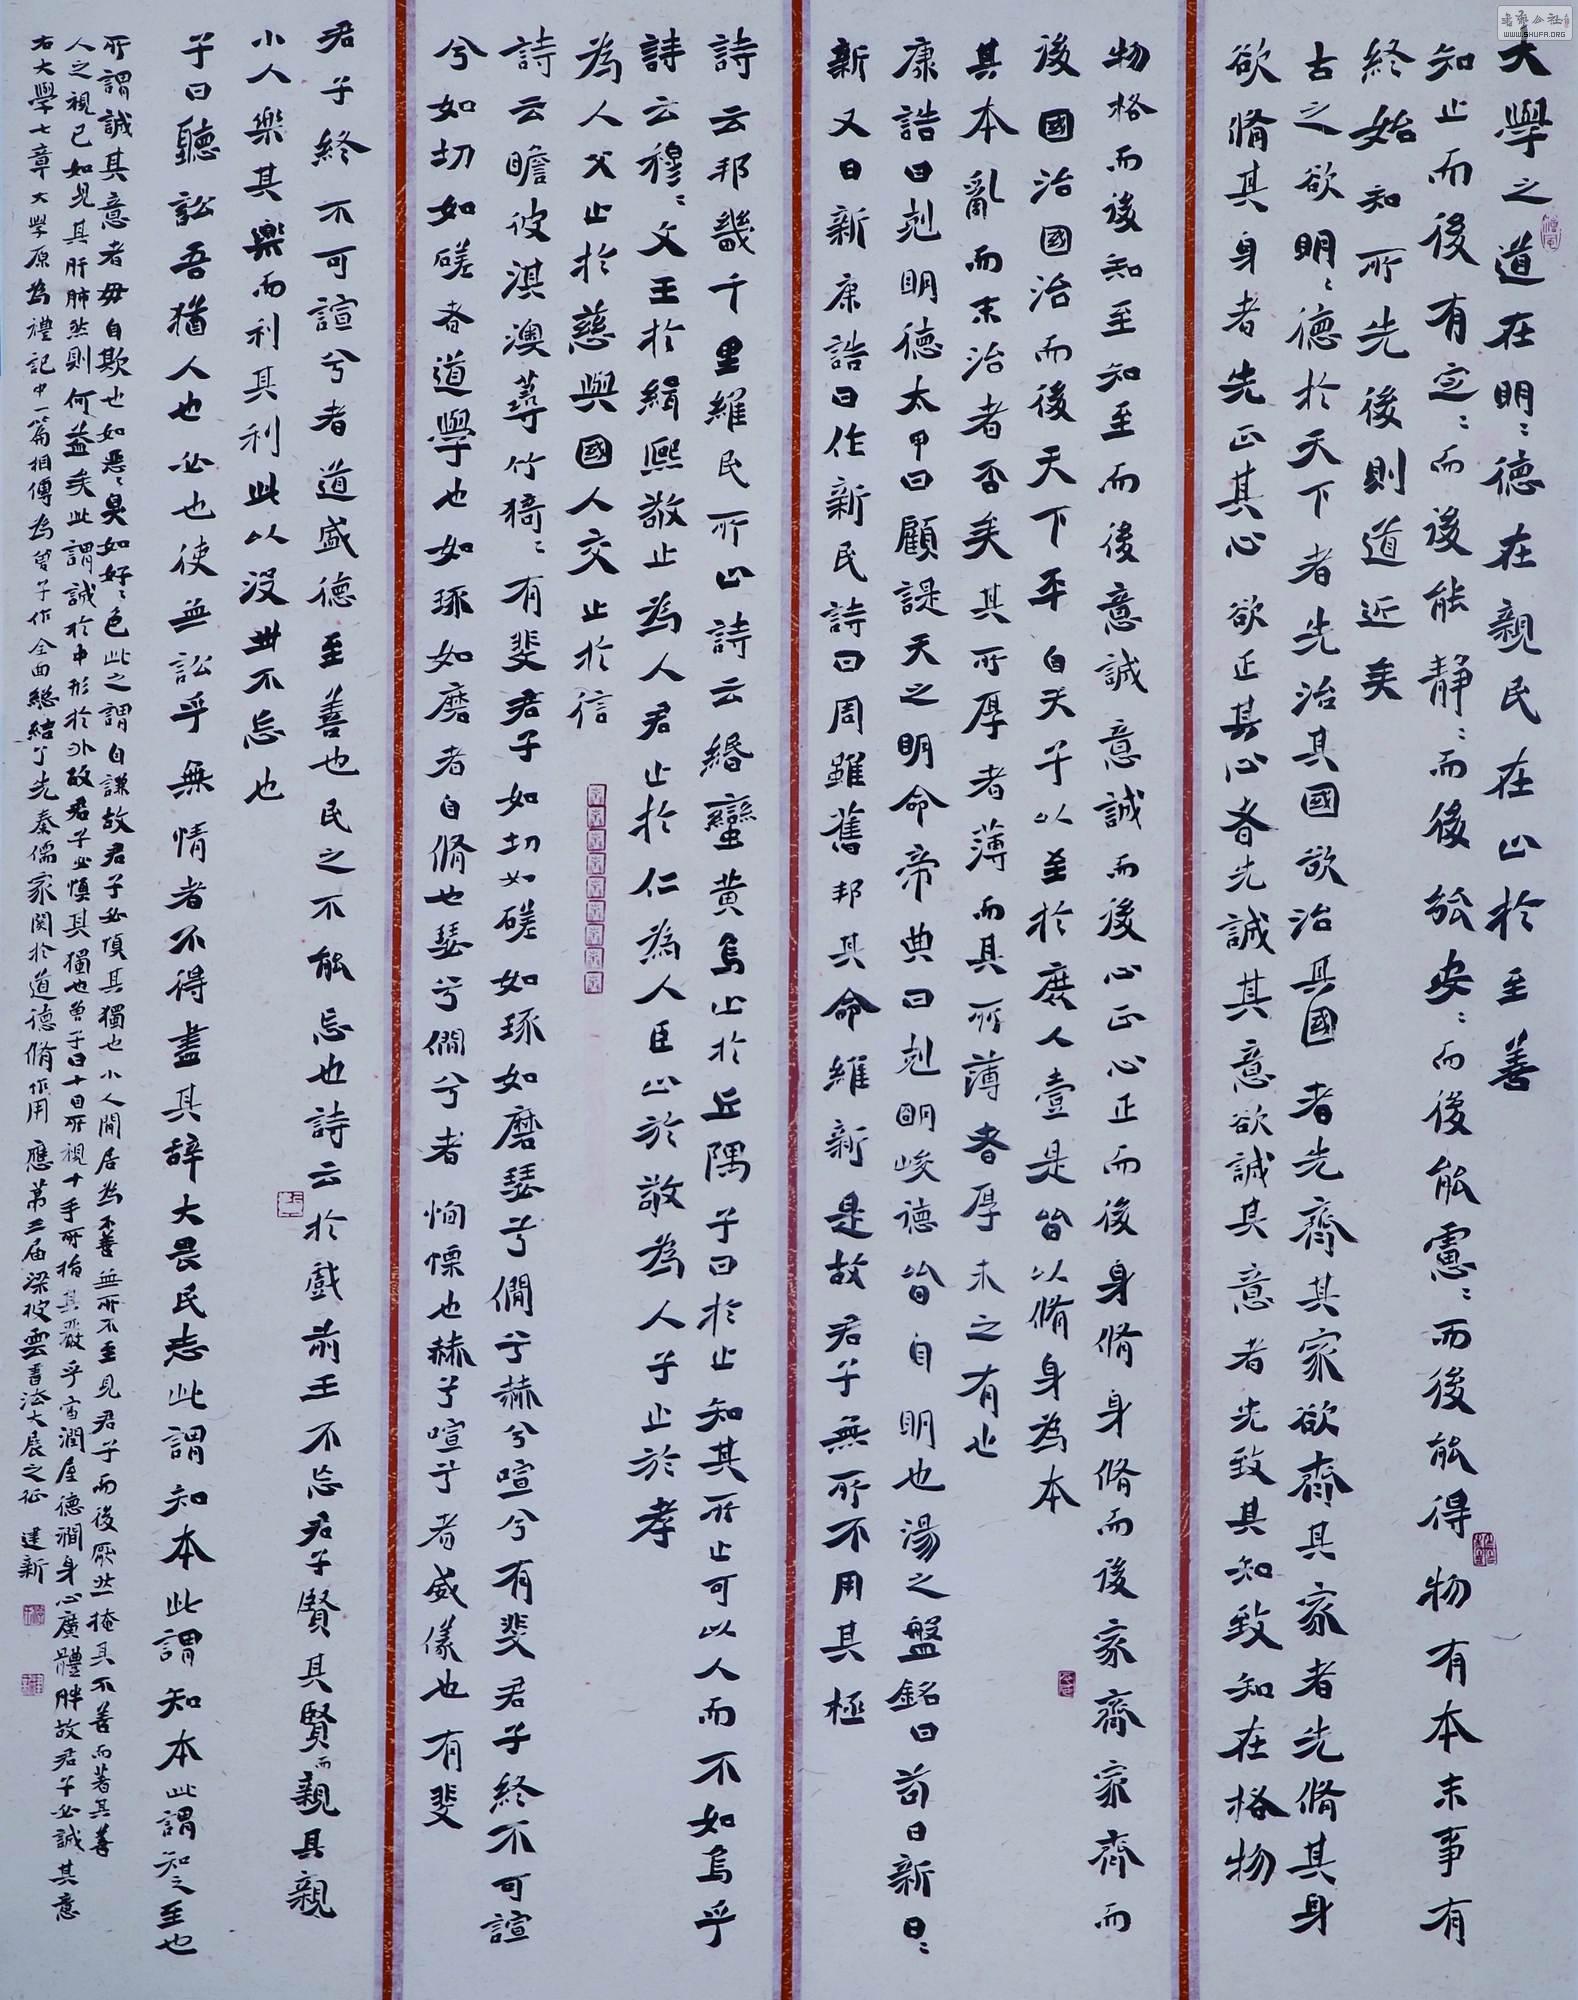 大學之道在明〻德在親民在止於至善
知止而後有定〻而後能静〻而後能安〻而後能慮〻而後能得物有本末事有
終始知所先後則道近矣
古之欲明〻德於天下者先治其國欲治其國者先齊其家欲齊其家者先脩其身
欲脩其身者先正其心欲正其心者先誠其意欲誠其意者先致其知致知在格物
物格而後知至知至而後意誠意誠而後心正心正而後身脩身脩而後家齊家齊而
後國治國治而後天下平自天子以至於庶人壹是皆以脩身為本
其本亂而末治者否矣其所厚者薄而其所薄者厚未之有也
康誥曰剋明德太甲曰顧諟天之明命帝典曰剋明峻德皆自明也湯之盤銘曰苟日新日〻
新又日新康誥曰作新民詩曰周雖舊邦其命維新是故君子無所不用其極
詩云邦畿千里維民所止詩云緡蠻黄鳥止於丘隅子曰於止知其所止可以人而不如鳥乎
詩云穆〻文王於緝熙敬止為人君止於仁為人臣止於敬為人子止於孝
為人父止於慈與國人交止於信
詩云瞻彼淇澳菉竹猗〻有斐君子如切如磋如琢如磨瑟兮僩兮赫兮喧兮有斐君子終不可諠
兮如切如磋者道學也如琢如磨者自脩也瑟兮僩兮者恂慄也赫兮喧兮者威儀也有斐
君子終不可諠兮者道盛德至善也民之不能忘也詩云於戲前王不忘君子賢其賢而親其親
小人樂其樂而利其利此以没世不忘也
子曰聽訟吾猶人也必也使無訟乎無情者不得盡其辞大畏民志此謂知本此謂知本此謂知之至也
所謂誠其意者毋自欺也如惡〻臭如好〻色此之謂自謙故君子必慎其獨也小人閒居為不善無所不至見君子而後厭然掩其不善而著其善
人之視己如見其肝肺然則何益矣此謂誠於中形於外故君子必慎其獨也曾子曰十目所視十手所指其嚴乎富潤屋德潤身心廣體胖故君子必誠其意
右大學七章大學原為禮記中一篇相傳為曾子作全面總結了先秦儒家関於道德脩作用應第三届梁披雲書法大展之征 建新
書法公社
WWW.SHUFA.ORG